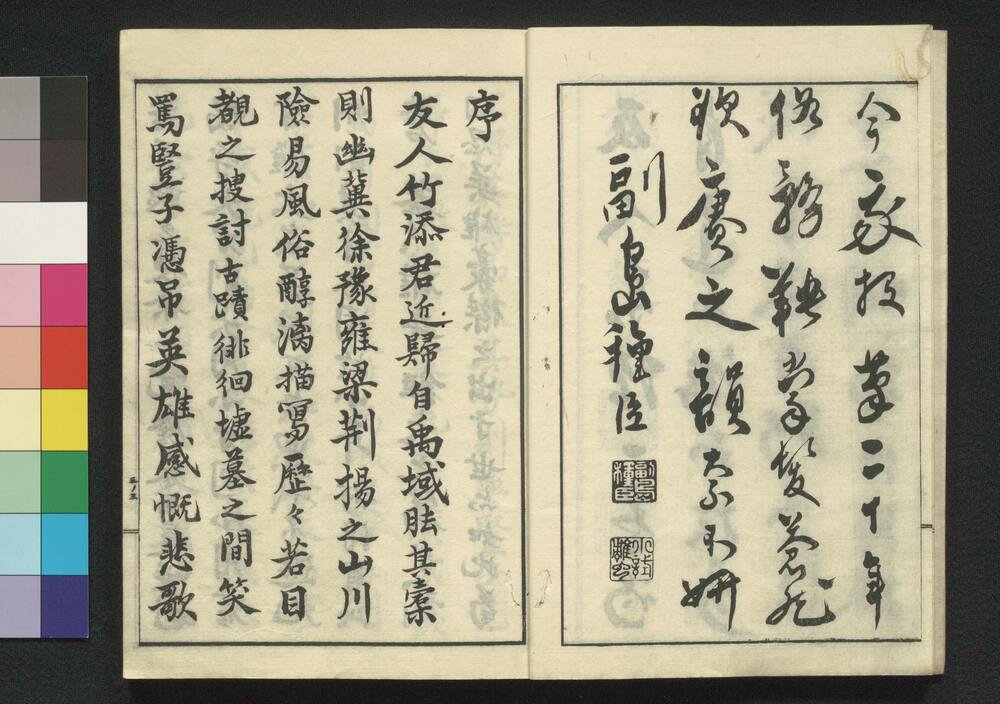 今我投筆二十年
俗
欲賡之韻奈不妍
副島種臣
副島
種臣
序
友人竹添君近歸自禹域胠其橐
則幽冀徐豫雍梁荊揚之山川
險易風俗醇漓描寫歷々若目
覩之搜討古蹟徘徊墟墓之間笑
罵豎子憑吊英雄感慨悲歌